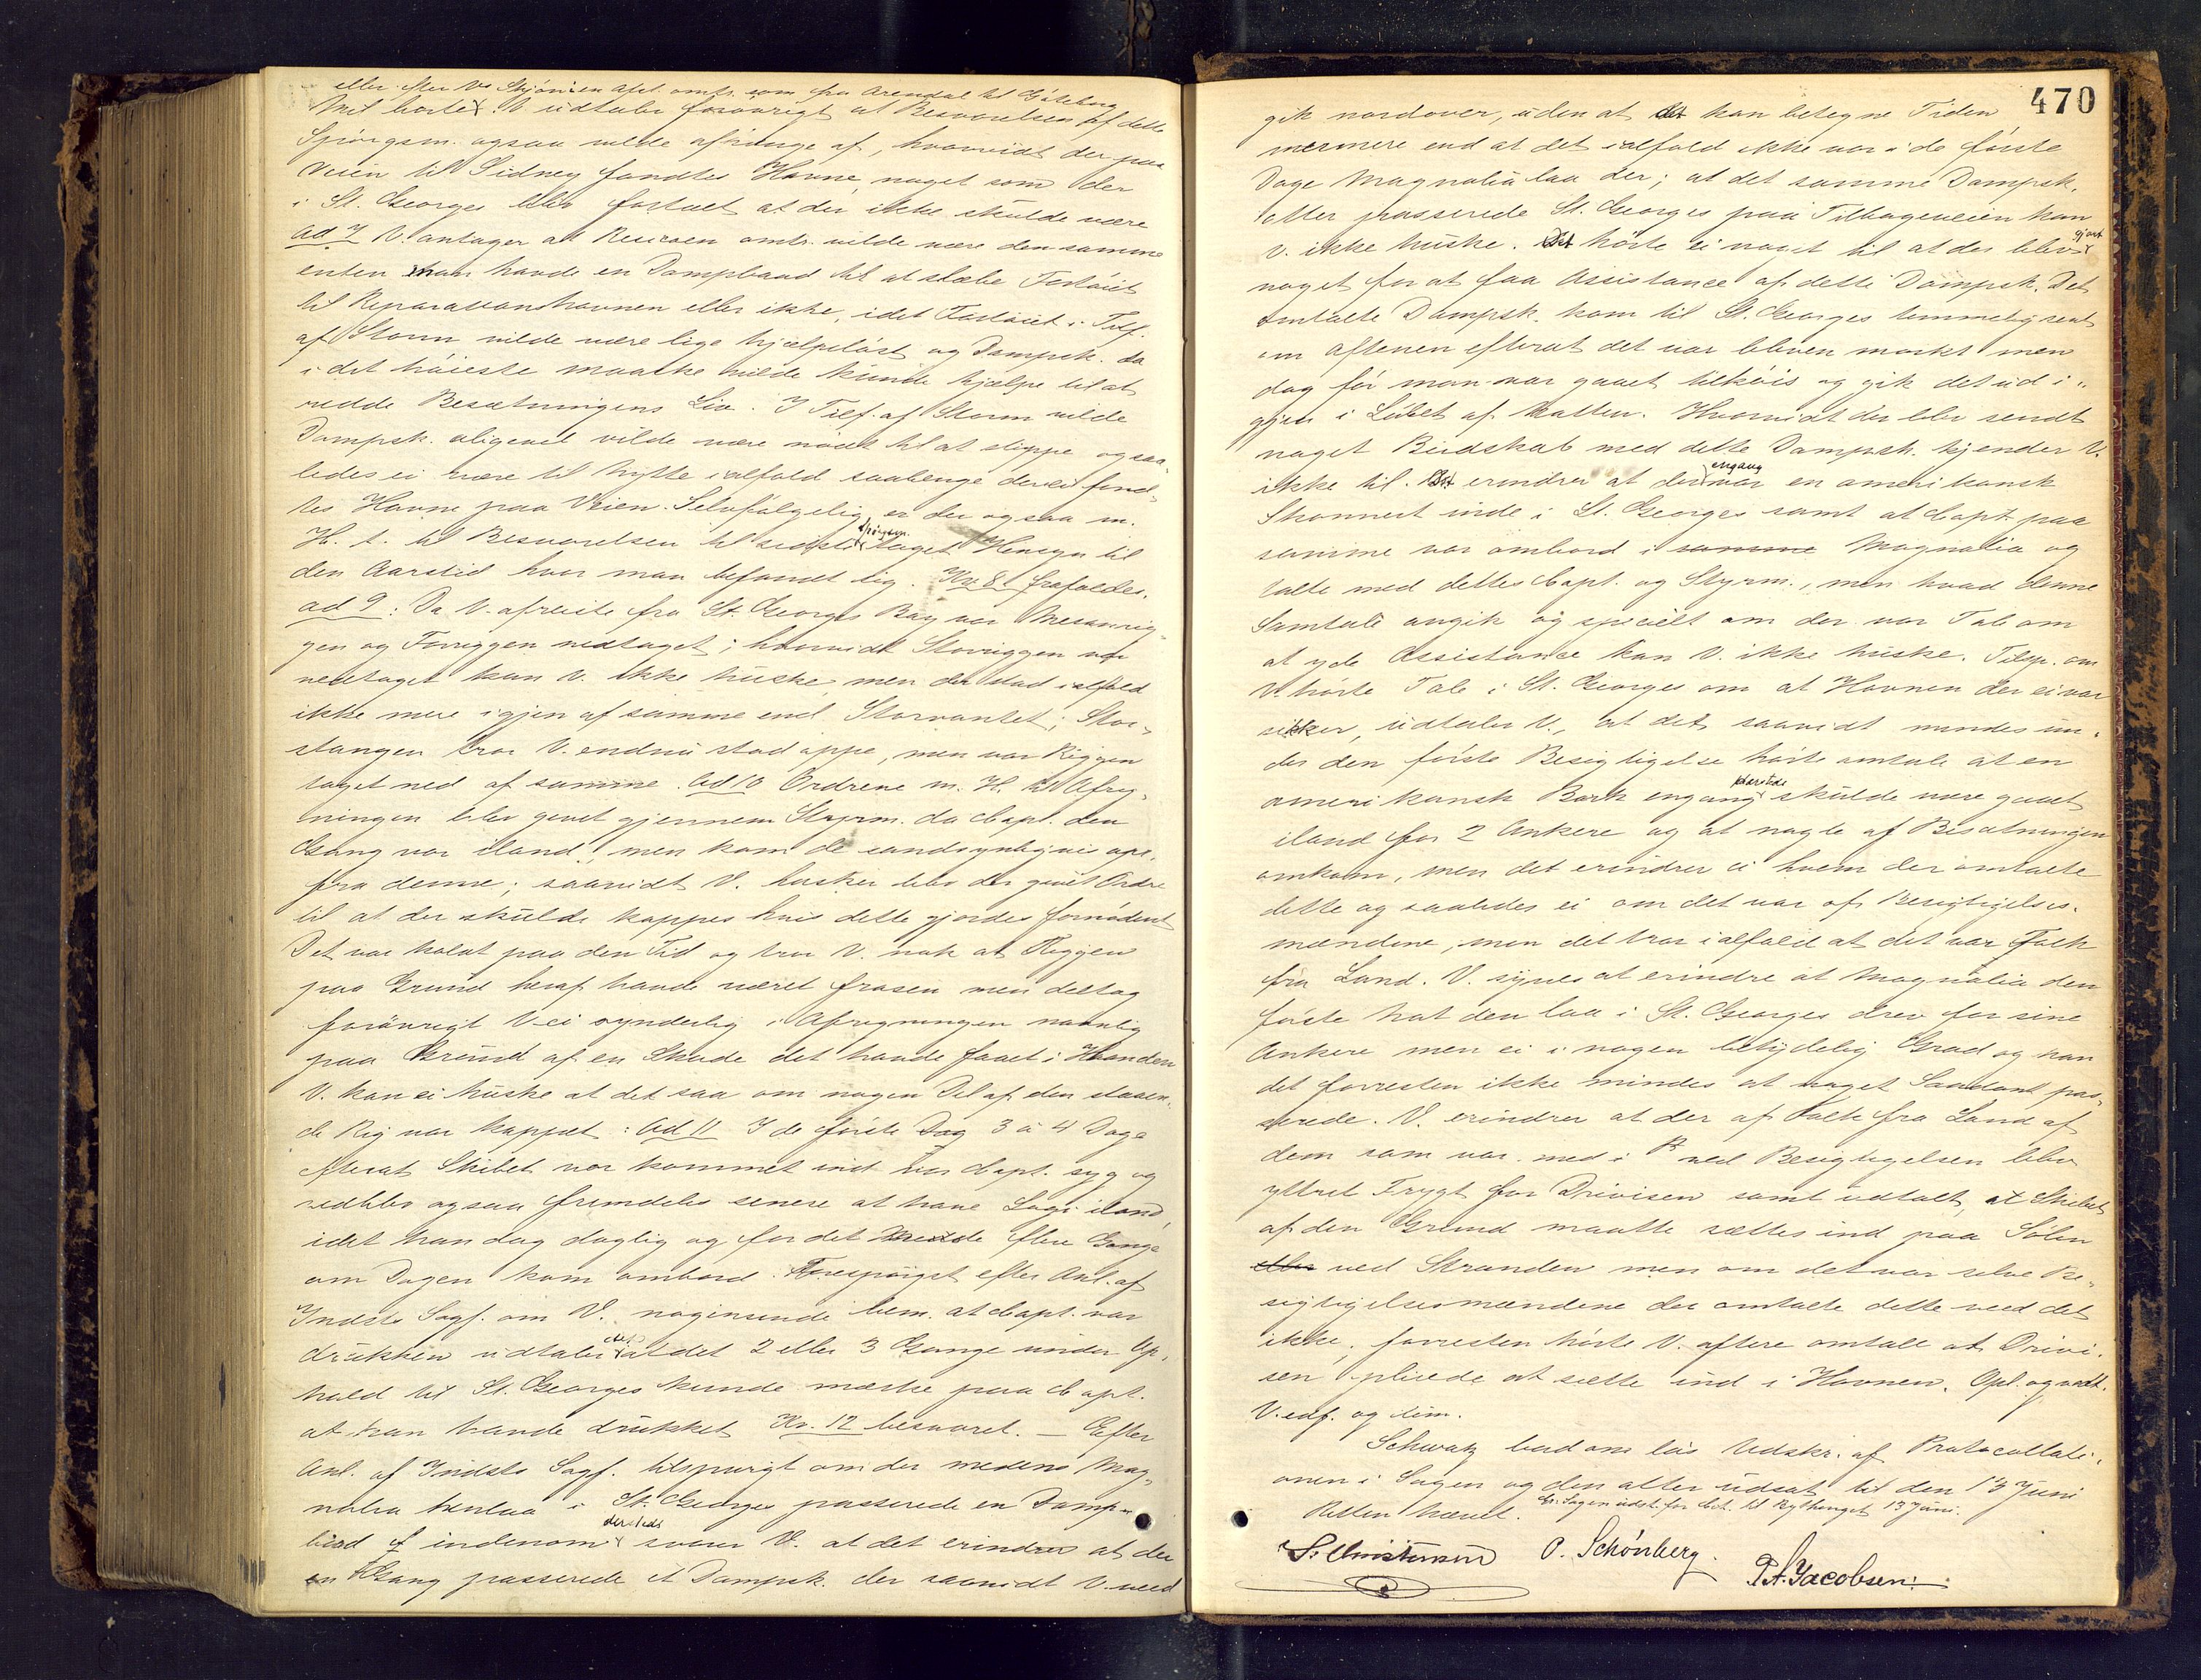 eller efter Vs Skjön en Afst. omtr. som fra Arendal til Göteborg
V. udtaler forøvrigt at Besvarelsen af dette
Spörgsm. ogsaa vilde afhænge af, hvorvidt der paa
Veien til Sidney fandtes Havne, noget som der
i St. Georges blev fortalt at der ikke skulde være
Ad 7 V. antager at Risicoen omtr. vilde være den samme
enten man havde en Dampbaad til at slæbe Fartöiet
til Reparationshavnen eller ikke, idet Fartöiet i Tilf.
af Storm vilde være lige hjælpelöst og Dampsk. da
i det höieste maaske vilde kunde hjælpe til at
redde Besætningens Liv. I Tilf. af Storm vilde
Dampsk. aligevel vilde være nödt til at slippe og saa-
ledes ei være til Nytte ialfald saalænge der ei fand-
tes Havne paa Veien. Selvfølgelig er der ogsaa m.
H. t. til Besvarelsen til sidste Spörgsm. taget Hensyn til
den Aarstid hvor man befandt sig. Kv. 8 frafaldes.
ad 9: Da V. afreiste fra St. Georges Bay var Mesanrig-
gen og Forriggen nedtaget; hvorvidt Storriggen var
nedtaget kan V. ikke huske, men der stod ialfald
ikke mere igjen af samme end Storvantet; Stor-
stangen tror V. endnu stod oppe, men var Riggen
taget ned af samme. Ad 10 Ordrene m. H. til Afrig-
ningen blev givet gjennem Styrm. da Capt. den
Gang var iland, men kom de sandsynligvis opr.
fra denne; saavidt V. husker blev der givet Ordre
til at der skulde kappes hvis dette gjordes fornödent
Det var koldt paa den Tid og tror V. nok at Riggen
paa Grund heraf havde været frosen men deltog
forövrigt V. ei synderlig i Afrigningen navnlig
paa Grund af en Skade det havde faaet i Haanden
V. kan ei huske at det saa om nogen Del af den staaen-
de Rig var kappet: Ad 11 I de förste Dag 3 à 4 Dage
efterat Skibet var kommet ind var Capt. syg og
vedblev ogsaa fremdeles senere at have Logi iland,
idet han dog daglig og for det meste flere Gange
om Dagen kom ombord. Forespörget efter Anl. af
Indst. Sagf. om V. nogensinde bem. at Capt. var
drukken udtaler det at det 2 eller 3 Gange under Op-
hold til St. Georges kunde mærke paa Capt.
at han havde drukket Kv. 12 besvaret. — Efter
Anl. af Indsts Sagf. tilspurgt om der medens Mag-
nalia henlaa i St. Georges passerede en Damp-
baad indenom dersteds svarer V. at det erindrer at der
en Gang passerede et Dampsk. der saavidt V. veed
470
gik nordover, uden at det kan betegne Tiden
nærmere end at det ialfald ikke var i de förste
Dage Magnalia laa der; at det samme Dampsk.
etter passerede St. Georges paa Tilbageveien kan
V. ikke huske. Det hörte ei noget til at der blev gjort
noget for at faa Assistance af dette Dampsk. Det
omtalte Dampsk. kom til St. Georges temmelig sent
om Aftenen efterat det var bleven mørkt men
dog för man var gaaet tilköis og gik det ud i-
gjen i Löbet af Natten. Hvorvidt der blev sendt
noget Budskab med dette Dampsk. kjender V.
ikke til. Det erindrer at der engang var en amerikansk
Skonnert inde i St. Georges samt at Capt. paa
samme var ombord i samme Magnalia og
talte med dettes Capt. og Styrm., men hvad denne
Samtale angik og specielt om der var Tale om
at yde Assistance kan V. ikke huske. Tilsp. om
V. hörte Tale i St. Georges om at Havnen der ei var
sikker, udtaler V., at det saavidt mindes un-
der den förste Besigtigelse hörte omtale at en
amerikansk Bark engang dersteds skulde være gaaet
iland for 2 Ankere og at nogle af Besætningen
omkom, men det erindrer ei hvem der omtalte
dette og saaledes ei om det var af Besigtigelses-
mændene, men det tror ialfald at det var Folk
fra Land. V. synes at erindre at Magnalia den
förste Nat den laa i St. Georges drev for sine
Ankere men ei i nogen betydelig Grad og kan
det forresten ikke mindes at noget Saadant pas-
serede. V. erindrer at der af Folk fra Land af
dem som var med i ved Besigtigelsen blev
yttret Frygt for Drivisen samt udtalt, at Skibet
af den Grund maatte sættes ind paa Sølen
eller ved Stranden men om det var selve Be-
sigtigelsesmændene der omtalte dette veed det
ikke; forresten hörte V. oftere omtale at Drivi-
sen pleiede at sætte ind i Havnen. Opl. og vedt.
V. edf. og dim.
Schwatz bad om lös Udskr. af Protocollati-
onen i Sagen og den atter udsat til den 13 Juni
Retten hævet. Sagen udst. for bet. til Bythinget 13 Juni.
S. Christensen O. Schönberg. P. A. Jacobsen.